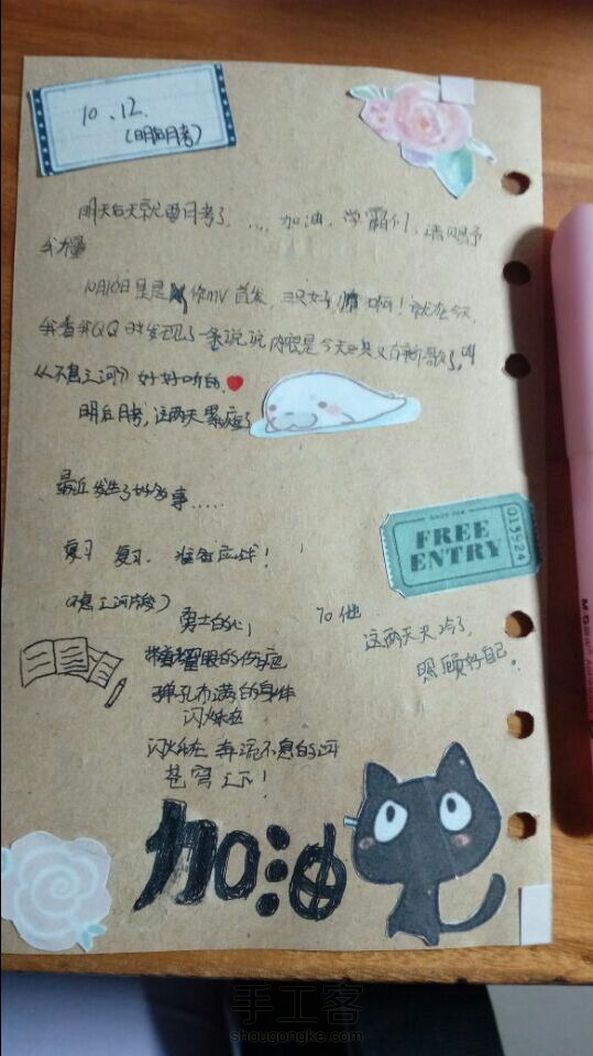 10.12.
(明后月考)
明天后天就要月考了.....加油,学霸们,请赐予
我力量
10月10日是 作mv首发, 好 啊!就在今天
我看我QQ时发现了一条说说内容是今天 又有新歌了,叫
《不息之河》好好听的.
明后月考,这两天累 了
最近发生了好多事.....
复习 复习. 准备应战!
(不息之河片段)
勇士的心,
带着耀眼的伤疤
弹孔布满的身体
闪烁在
闪烁在 奔流不息的河
苍穹之下!
To 他.
这两天天冷了,
照顾好自己。
FREE
ENTRY
015924
加油
M&G
手工客
shougongke.com